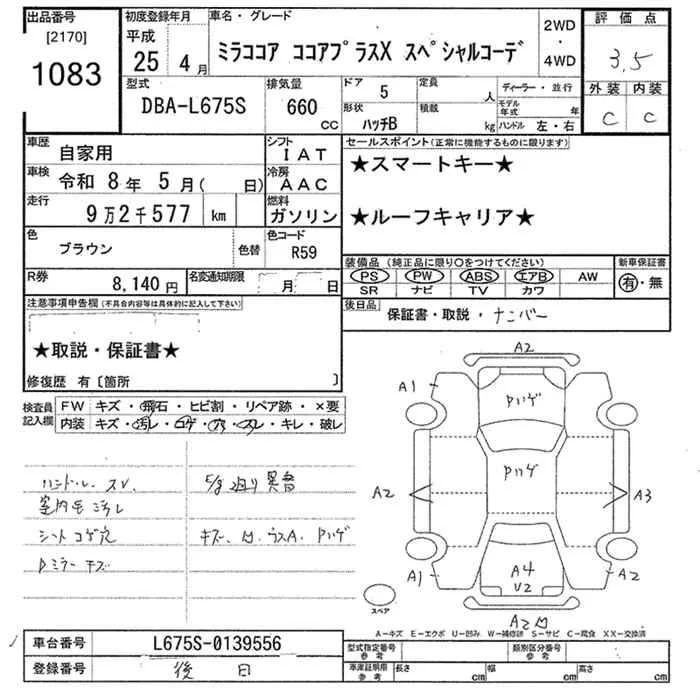 出品番号
[2170]
1083
初度登録年月
平成
25 4月
車名・グレード
ミラココア ココアプラスX スペシャルコーデ
2WD
・
4WD
評価点
3.5
外装 内装
C C
型式
DBA-L675S
排気量
660
cc
ドア
5
形状
ハッチB
定員
人
積載
kg
ディーラー・並行
モデル年式 年
ハンドル 左・右
車歴
自家用
シフト
IAT
車検
令和 8年 5月( 日)
冷房
AAC
走行
9万2千577 km
燃料
ガソリン
色
ブラウン
色替
色コード
R59
R券
8,140円
名変通知期限
月 日
セールスポイント(正常に機能するものに限ります)
★スマートキー★
★ルーフキャリア★
装備品 (純正品に限り○をつけてください) 新車保証書
PS PW ABS エアB AW
SR ナビ TV カワ
有・無
後日品
保証書・取説・ナンバー
注意事項申告欄(不具合内容等は具体的に記入して下さい)
★取説・保証書★
修復歴 有〔箇所 〕
検査員記入欄
FW キズ・飛石・ヒビ割・リペア跡・×要
内装 キズ・汚レ・コゲ・穴・スレ・キレ・破レ
ハンドル、スレ
室内毛 汚レ
シート コゲ穴
Dミラー キズ
5/8 廻り 異音
キズ、凹、ウスA、Pハゲ
A2
A1
Pハゲ
Pハゲ
A2
A3
A4
U2
A1
A2
A2凹
スペア
A−キズ E−エクボ U−凹み W−補修跡 S−サビ C−腐食 XX−交換済
車台番号
L675S-0139556
登録番号
後 日
型式指定番号
参考
類別区分番号
参考
車庫証明用
参考
長さ cm
幅 cm
高さ cm